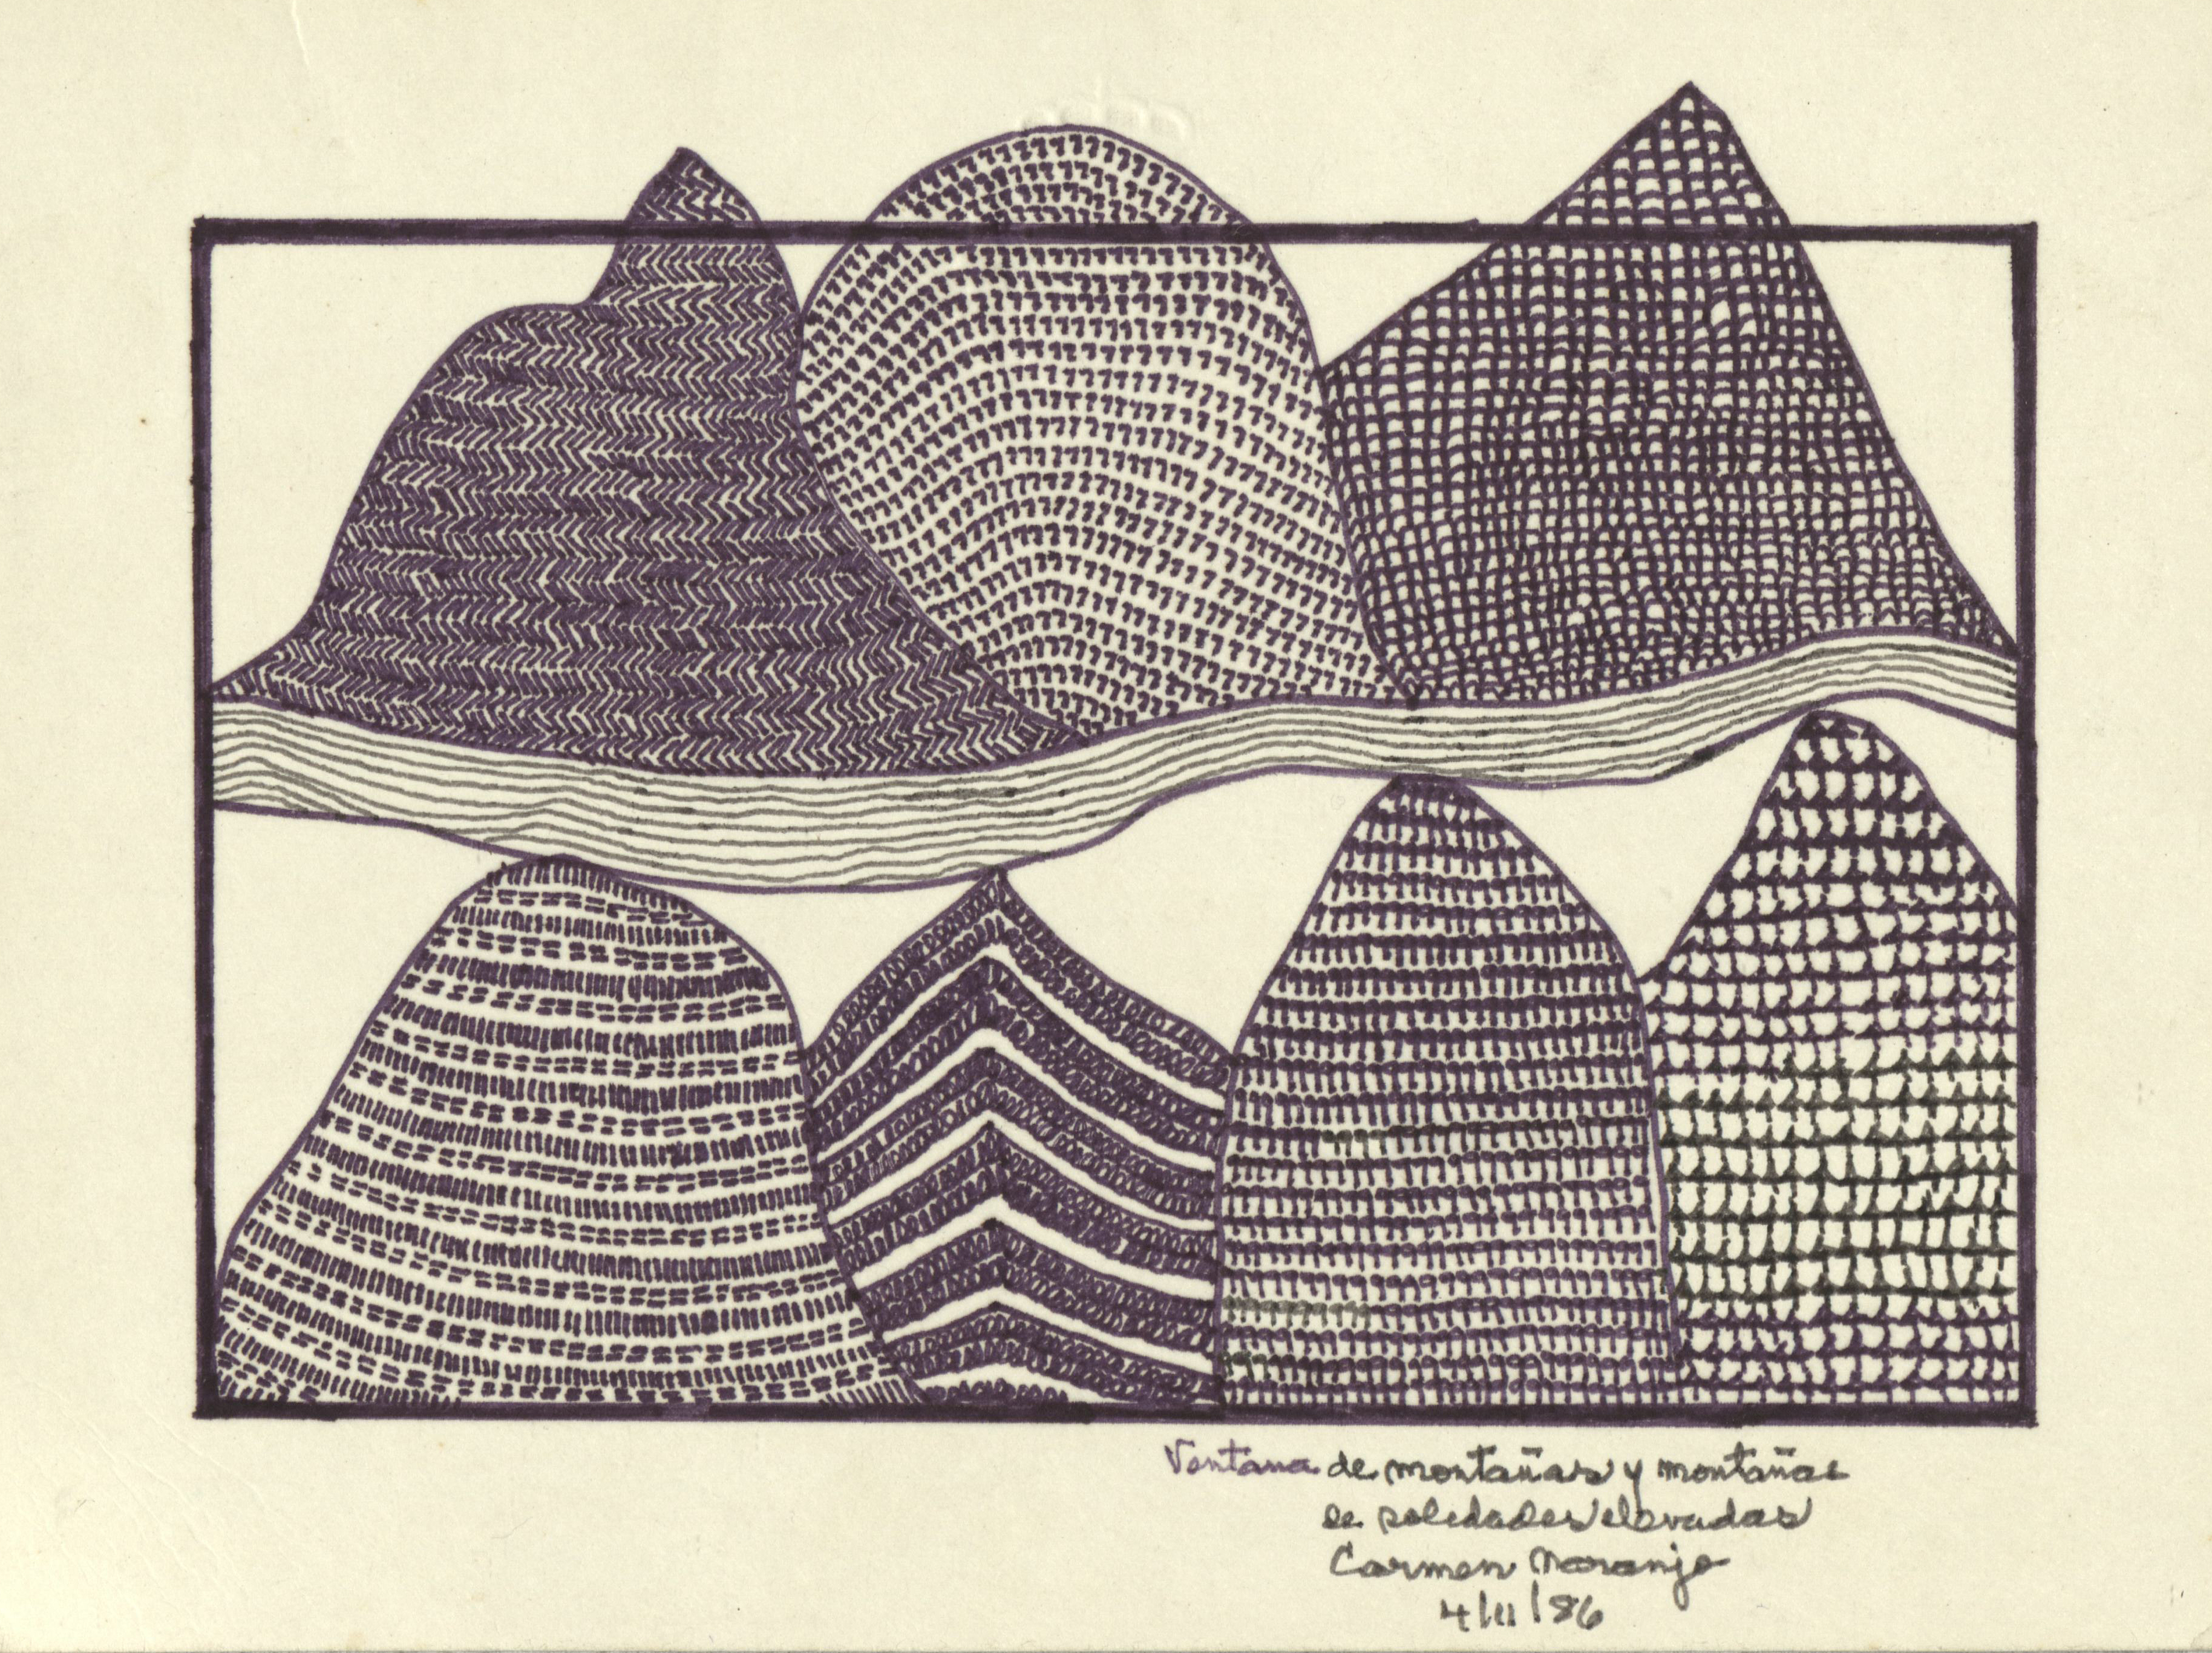 Ventana de montañas y montañas
de soledades elevadas
Carmen Naranjo
4/III/86